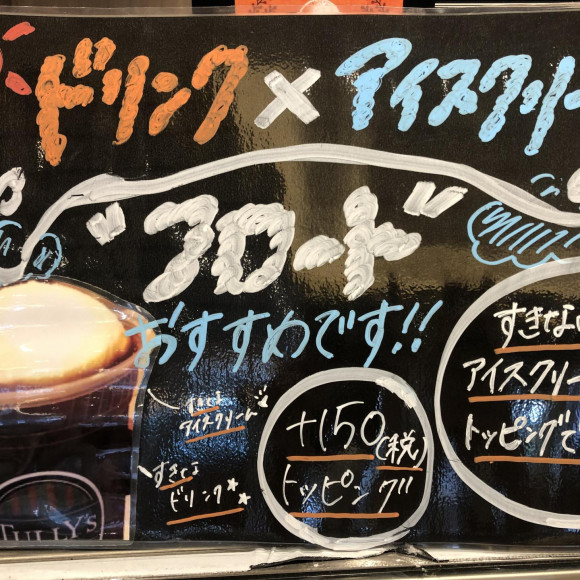 ドリンク×アイスクリー
"フロード"
おすすめです!!
すきな
アイスクリーム
すきな
ドリンク
+150(税)
トッピング
すきな
アイスクリー
トッピングで
TULLY'S